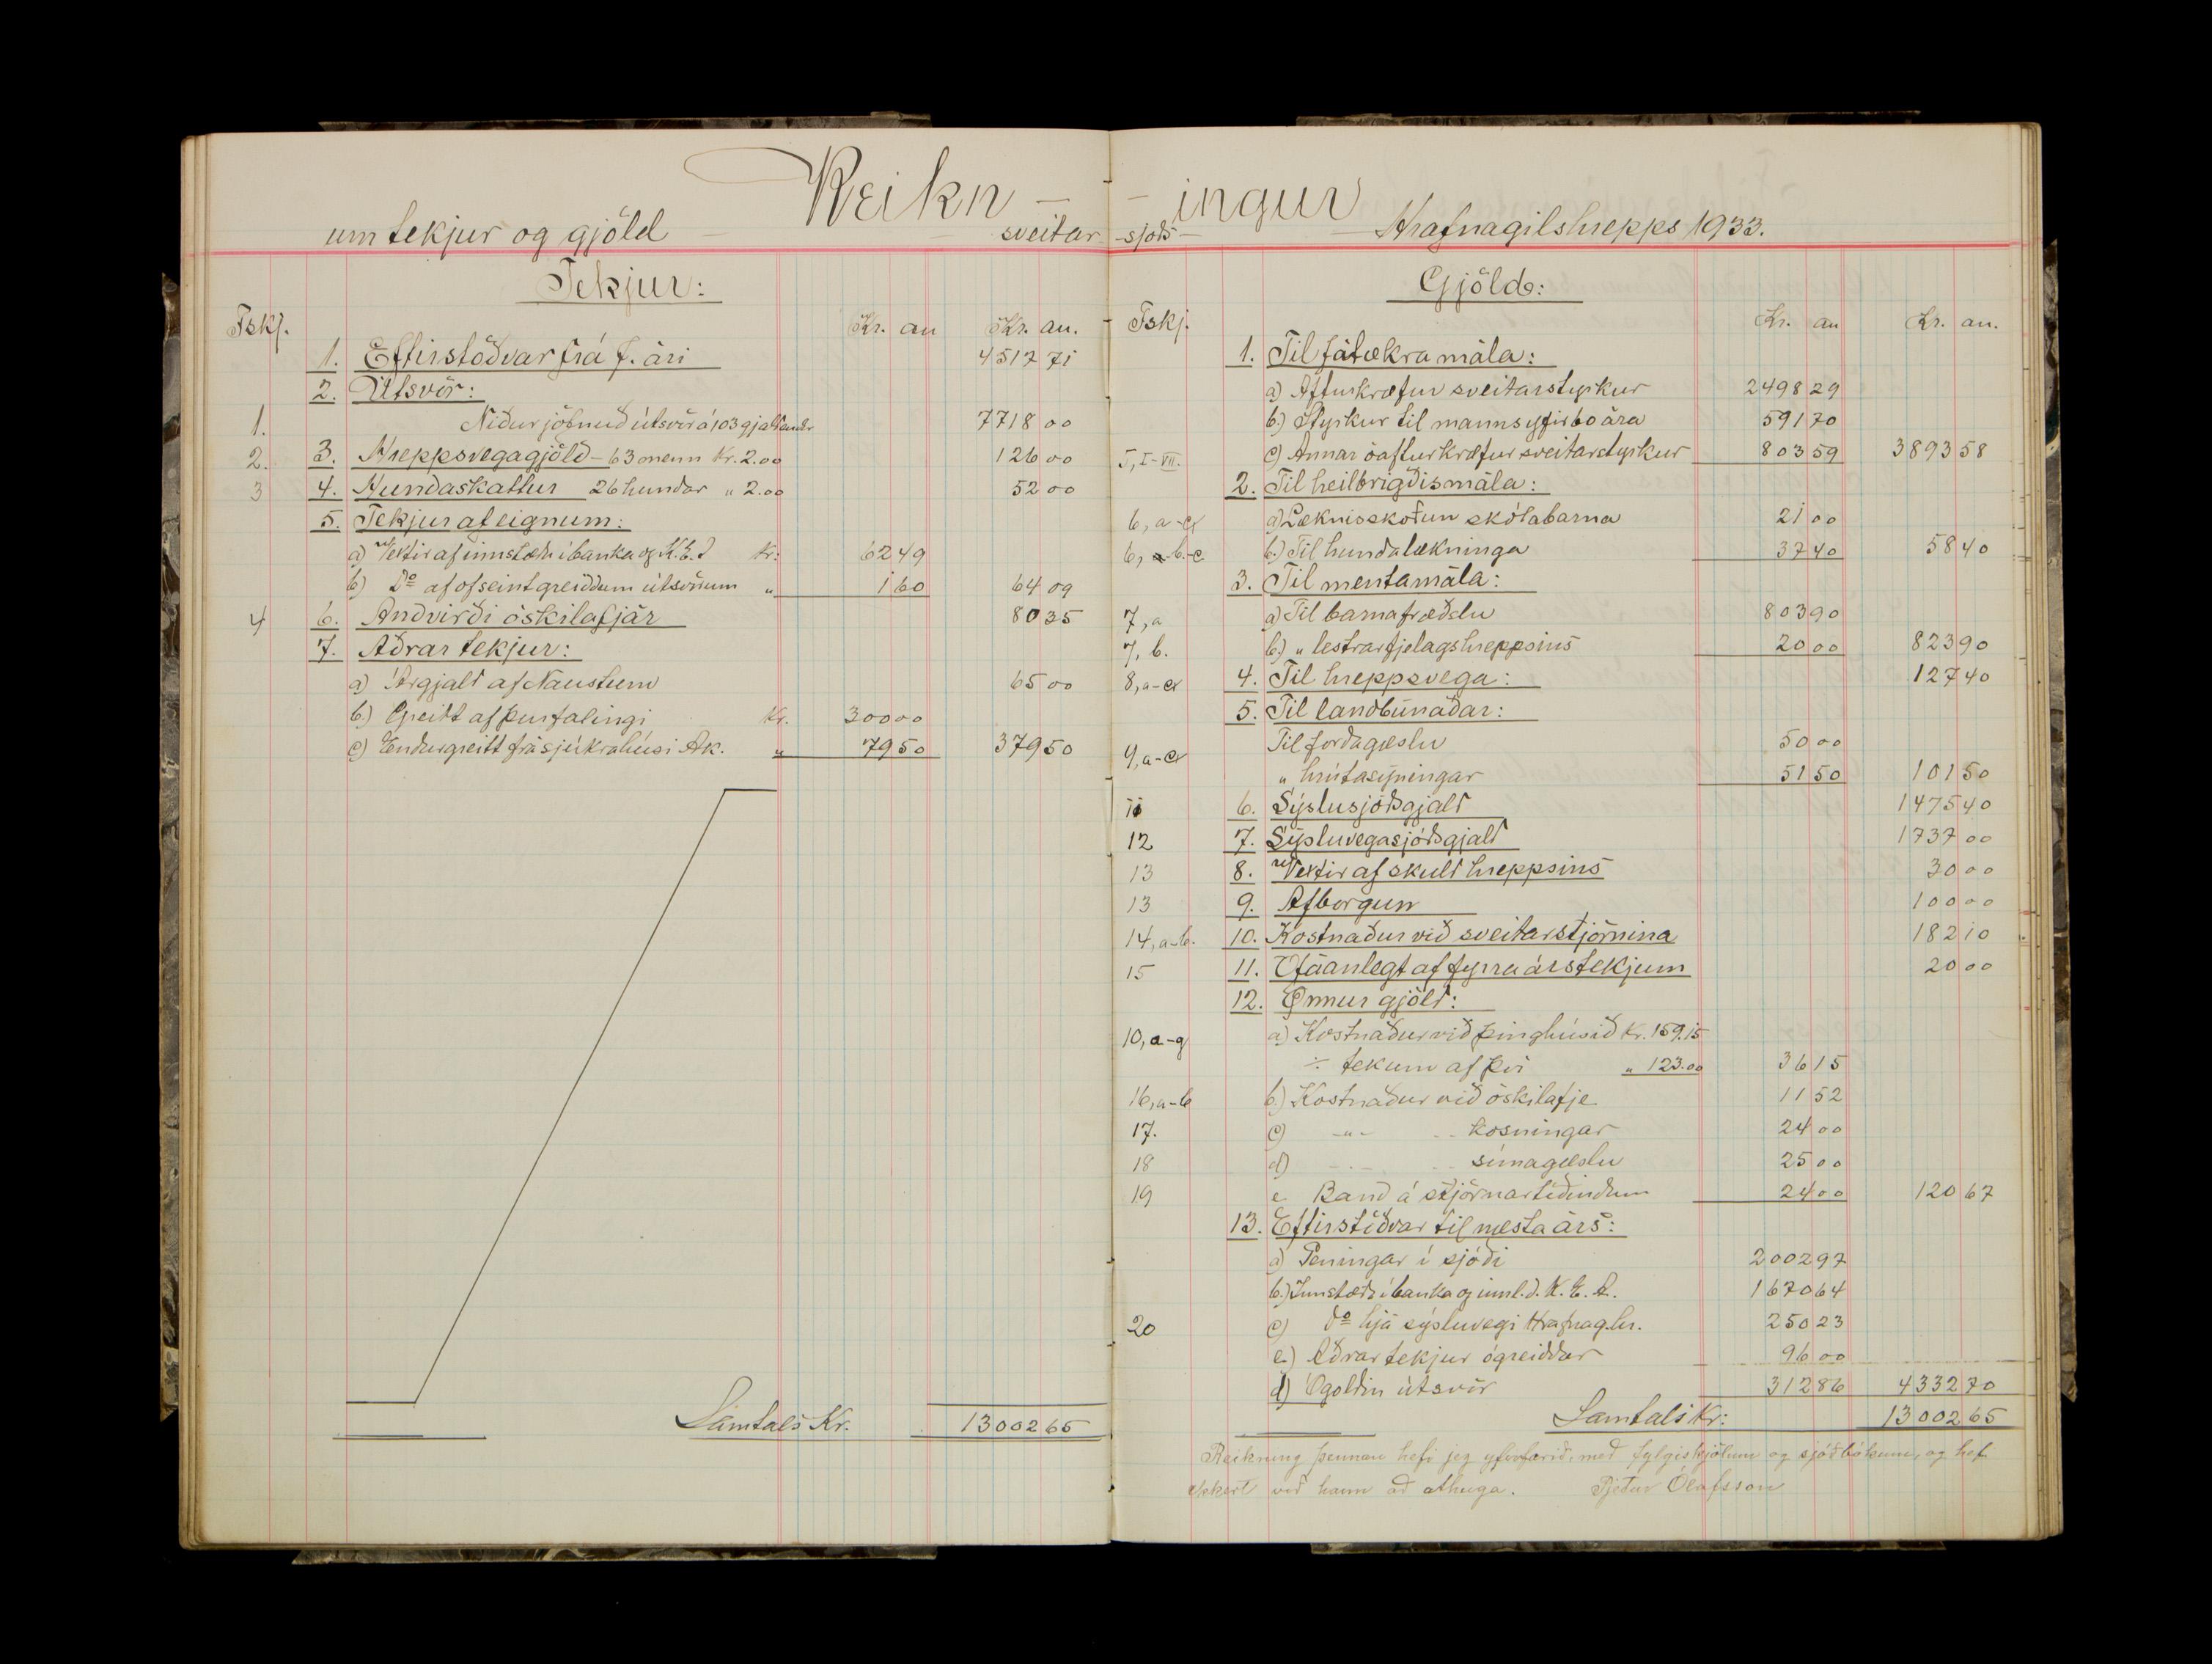 Reikn - - ingur
um tekjur og gjöld sveitar-sjóðs Hrafnagilshrepps 1933.
Tekjur:
Fskj. Kr. au Kr. au.
1. Eftirstöðvar frá f. ári 4517 71
2. Útsvör:
1. Niðurjöfnuð útsvör á 103 gjaldendur 7718 00
2. 3. Hreppsvegagjöld - 63 menn Kr. 2.00 126 00
3 4. Hundaskattur 26 hundar " 2.00 52 00
5. Tekjur af eignum:
a) Vextir af innstæðu í banka og K.E.A Kr: 62 49
b) Do af ofseint greiddum útsvörum " 1 60 64 09
4 6. Andvirði óskilafjár 80 35
7. Aðrar tekjur:
a) Árgjald af Naustum 65 00
b.) Greitt af þurfalingi Kr. 300 00
c) Endurgreitt frá sjúkrahúsi Ak. " 79 50 379 50
Samtals Kr. 13002 65
Gjöld:
Fskj. Kr. au Kr. au.
1. Til fátækra mála:
a) Afturkræfur sveitarstyrkur 2498 29
b.) Styrkur til manns yfir 60 ára 591 70
5, I-VII. c) Annar óafturkræfur sveitarstyrkur 803 59 3893 58
2. Til heilbrigðismála:
6, a- a) Læknisskoðun skólabarna 21 00
6, b-c b.) Til hundalækninga 37 40 58 40
3. Til mentamála:
7, a a) Til barnafræðslu 803 90
7, b. b.) " lestrarfjelags hreppsins 20 00 823 90
8, a- 4. Til hreppsvega: 127 40
5. Til landbúnaðar:
9, a- Til forðagæslu 50 00
" hrútasýningar 51 50 101 50
11 6. Sýslusjóðsgjald 1475 40
12 7. Sýsluvegasjóðsgjald 1737 00
13 8. Vextir af skuld hreppsins 30 00
13 9. Afborgun 100 00
14, a-b. 10. Kostnaður við sveitarstjórnina 182 10
15 11. Ófáanlegt af fyrra árs tekjum 20 00
12. Önnur gjöld:
10, a-g a) Kostnaður við þinghúsið Kr. 159.15
÷ tekjum af því " 123.00 36 15
16, a-b b.) Kostnaður við óskilafje 11 52
17. c) -"- -- kosningar 24 00
18 d) - . - -- símagæslu 25 00
19 e Band á stjórnartíðindum 24 00 120 67
13. Eftirstöðvar til næsta árs:
a) Peningar í sjóði 2002 97
b.) Innstæða í banka og innl.d. K.E.A. 1670 64
20 c) do hjá sýsluvegi Hrafnag.hr. 250 23
e.) Aðrar tekjur ógreiddar 96 00
d) Ógoldin útsvör 312 86 4332 70
Samtals Kr: 13002 65
Reikning þennan hefi jeg yfirfarið, með fylgiskjölum og sjóðbókum, og hef
ekkert við hann að athuga. Pjetur Ólafsson